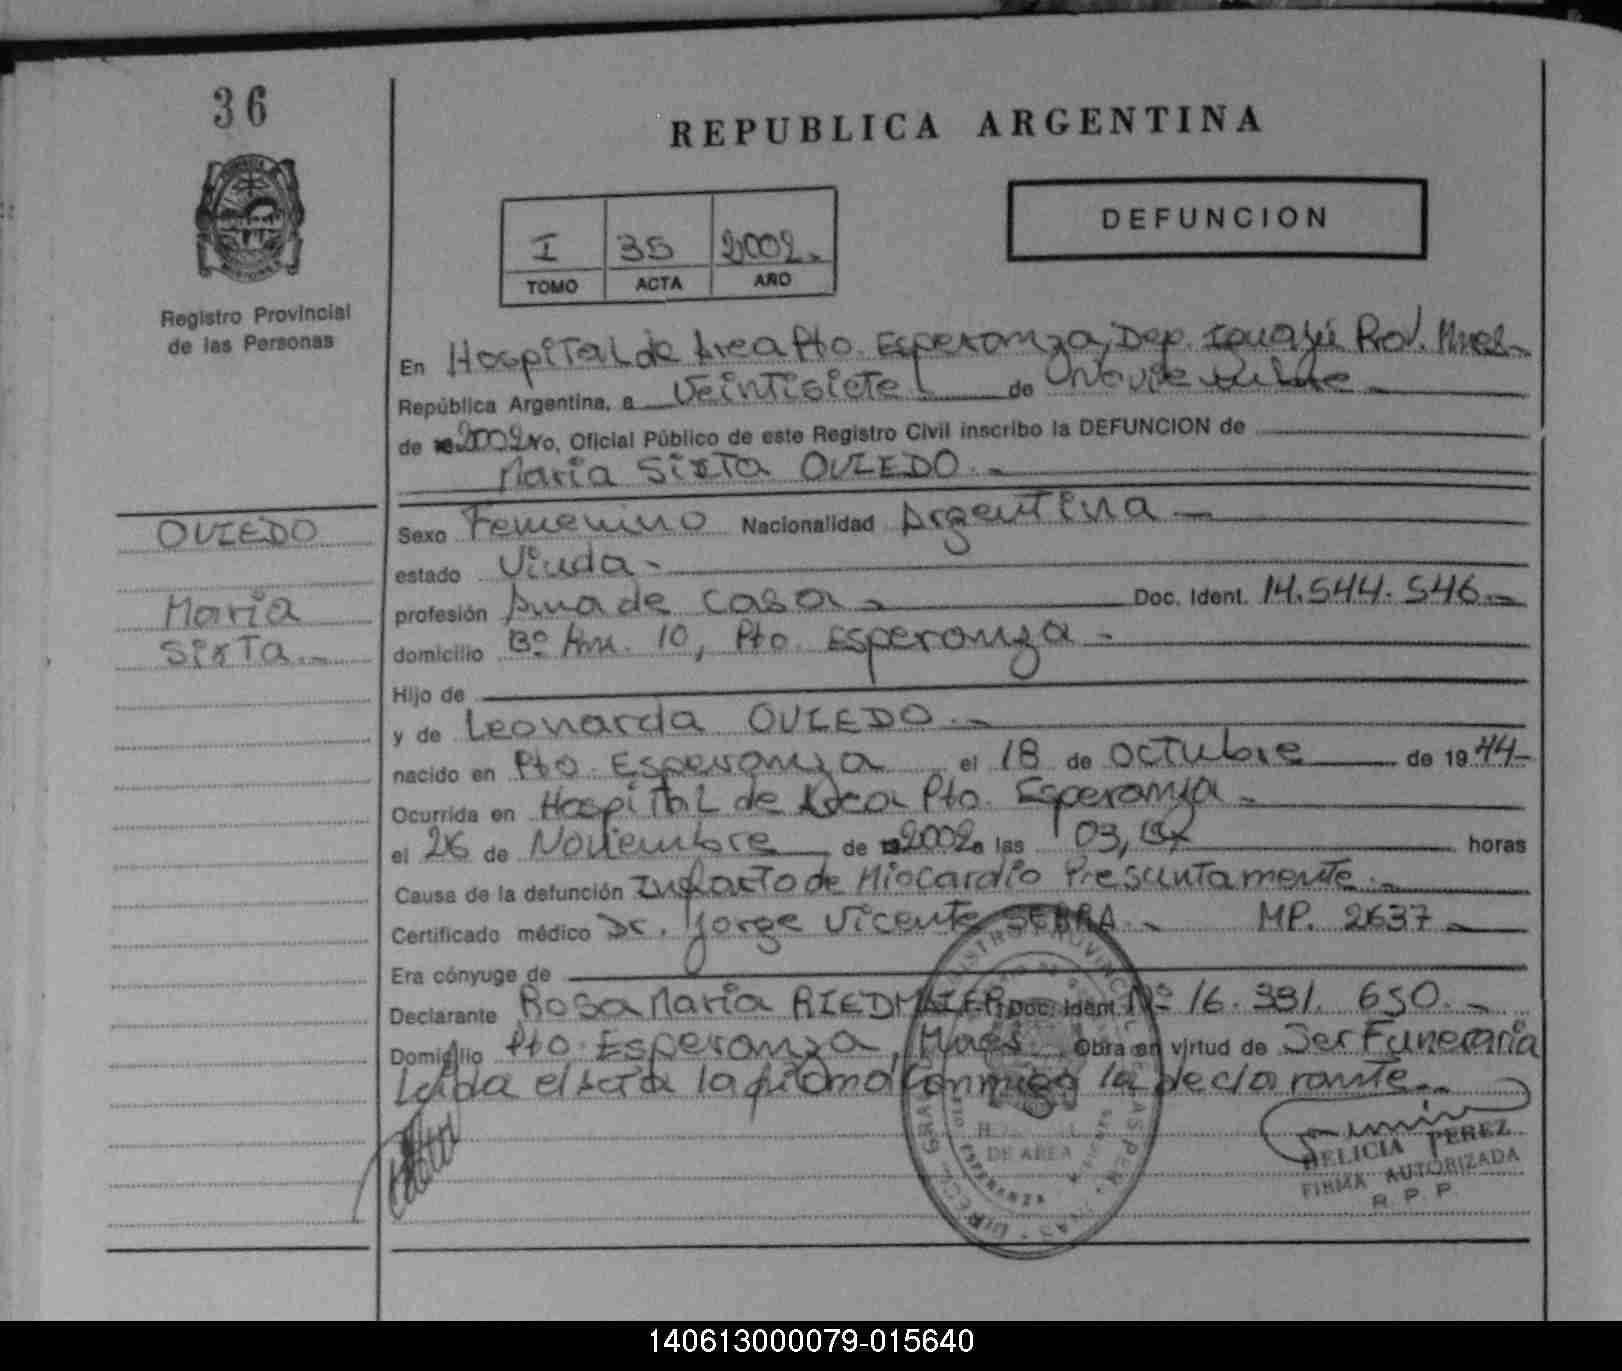 36
REPUBLICA ARGENTINA
DEFUNCION
I 35 2002.
TOMO ACTA AÑO
Registro Provincial
de las Personas
En Hospital de Area Pto. Esperanza, Dep. Iguazú Prov. Mnes.
República Argentina, a Veintisiete de Noviembre
de 2002 Yo, Oficial Público de este Registro Civil inscribo la DEFUNCION de
Maria Sixta OVIEDO.
OVIEDO
Maria
Sixta.
Sexo Femenino Nacionalidad Argentina
estado Viuda
profesión Ama de casa Doc. Ident. 14.544.546
domicilio Bº Km. 10, Pto. Esperanza
Hijo de
y de Leonarda OVIEDO.
nacido en Pto. Esperanza el 18 de octubre de 1944
Ocurrida en Hospital de Area Pto. Esperanza
el 26 de Noviembre de 2002 a las 03, horas
Causa de la defunción Infarto de Miocardio Presuntamente.
Certificado médico Dr. Jorge Vicente SEBRA. MP. 2637
Era cónyuge de
Declarante Rosa Maria RIEDMAIER Doc. Ident. Nº 16.391.650.
Domicilio Pto. Esperanza, Mnes. Obra en virtud de Ser Funeraria
Leida el acta la firma conmigo la declarante.
DE AREA
ESPERANZA
DELICIA PEREZ
FIRMA AUTORIZADA
R. P. P.
140613000079-015640